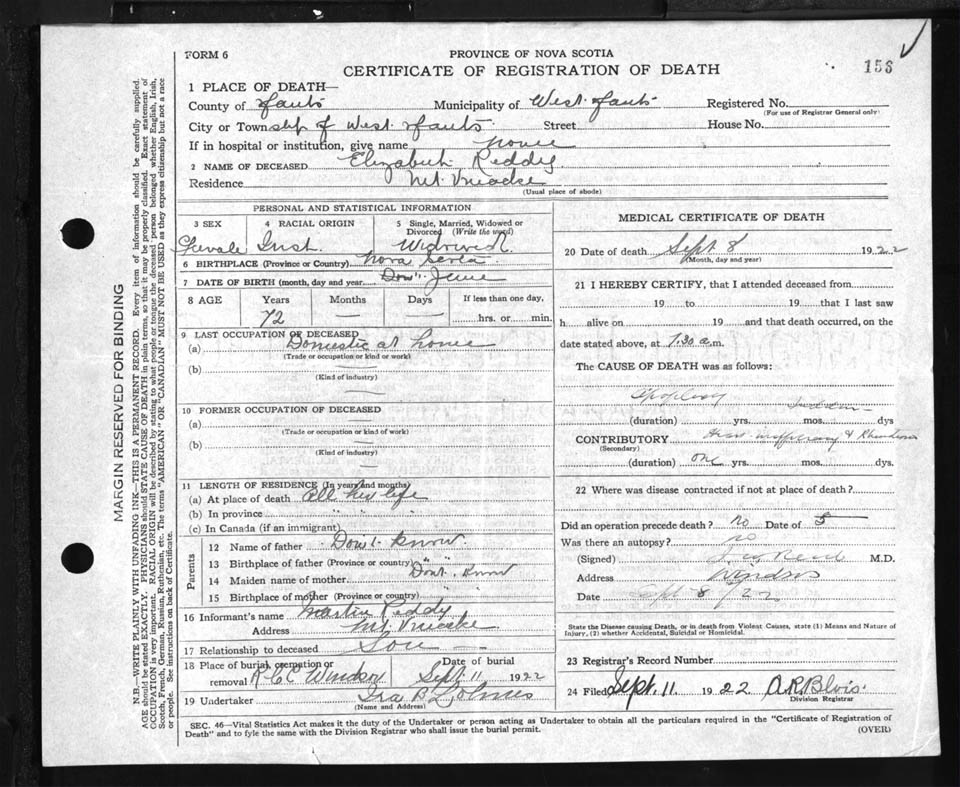 FORM 6
PROVINCE OF NOVA SCOTIA
CERTIFICATE OF REGISTRATION OF DEATH
156
1 PLACE OF DEATH—
County of Hants Municipality of West Hants Registered No.
(For use of Registrar General only)
City or Township of West Hants Street House No.
If in hospital or institution, give name home
2 NAME OF DECEASED Elizabeth Reddy
Residence Mt. Uniacke
(Usual place of abode)
PERSONAL AND STATISTICAL INFORMATION
3 SEX 4 RACIAL ORIGIN 5 Single, Married, Widowed or Divorced (Write the word)
Female Irish Widowed
6 BIRTHPLACE (Province or Country) Nova Scotia
7 DATE OF BIRTH (month, day and year) Don't
8 AGE Years Months Days If less than one day,
72 — — hrs. or min.
9 LAST OCCUPATION OF DECEASED
(a) Domestic at home
(Trade or occupation or kind or work)
(b)
(Kind of industry)
10 FORMER OCCUPATION OF DECEASED
(a)
(Trade or occupation or kind of work)
(b)
(Kind of industry)
11 LENGTH OF RESIDENCE (In years and months)
(a) At place of death All her life
(b) In province " " "
(c) In Canada (if an immigrant)
Parents
12 Name of father Don't know
13 Birthplace of father (Province or country) " "
14 Maiden name of mother Don't know
15 Birthplace of mother (Province or country) " "
16 Informant's name Martin Reddy
Address Mt Uniacke
17 Relationship to deceased Son
18 Place of burial, cremation or removal R C C Windsor Date of burial Sept 11 1922
19 Undertaker Ira B
(Name and Address)
MEDICAL CERTIFICATE OF DEATH
20 Date of death Sept 8 1922
(Month, day and year)
21 I HEREBY CERTIFY, that I attended deceased from
19 to 19 that I last saw
h alive on 19 and that death occurred, on the
date stated above, at 7.30 a.m.
The CAUSE OF DEATH was as follows:
apoplexy
(duration) yrs. mos. dys
CONTRIBUTORY
(Secondary)
(duration) one yrs. mos. dys.
22 Where was disease contracted if not at place of death?
Did an operation precede death? no Date of
Was there an autopsy? no
(Signed) M.D.
Address Windsor
Date Sept 8 /22
State the Disease causing Death, or in death from Violent Causes, state (1) Means and Nature of
Injury, (2) whether Accidental, Suicidal or Homicidal.
23 Registrar's Record Number
24 Filed Sept. 11 1922 A.R.
Division Registrar
SEC. 46—Vital Statistics Act makes it the duty of the Undertaker or person acting as Undertaker to obtain all the particulars required in the "Certificate of Registration of
Death" and to fyle the same with the Division Registrar who shall issue the burial permit. (OVER)
MARGIN RESERVED FOR BINDING
N.B.—WRITE PLAINLY WITH UNFADING INK—THIS IS A PERMANENT RECORD. Every item of information should be carefully supplied.
AGE should be stated EXACTLY. PHYSICIANS should STATE CAUSE OF DEATH in plain terms, so that it may be properly classified. Exact statement of
OCCUPATION is very important. RACIAL ORIGIN will be described by stating to what people or tongue the deceased person belonged whether English, Irish,
Scotch, French, German, Russian, Ruthenian, etc. The terms "AMERICAN" OR "CANADIAN" MUST NOT BE USED as they express citizenship but not a race
or people. See instructions on back of Certificate.